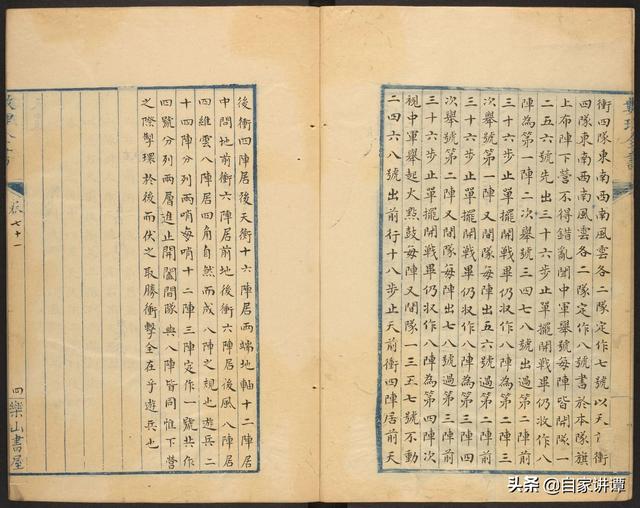 衝四隊東南西南風雲各二隊定作七號以天衝
四隊東南西南風雲各二隊定作八號書於本隊旗
上布陣下營不得錯亂聞中軍舉號每陣皆開隊一
二五六號先出三十六步止單擺開戰畢仍收作八
陣為第一陣二次舉號三四七八號出過第一陣前
三十六步止單擺開戰畢仍收作八陣為第二陣三
次舉號第一陣又間隊每陣出五六號過第二陣前
三十六步止單擺開戰畢仍收作八陣為第三陣四
次舉號第二陣又間隊每陣出七八號過第三陣前
三十六步止單擺開戰畢仍收作八陣為第四陣次
視中軍舉起火點鼓每陣又間隊一三五七號不動
二四六八號出前行十八步止天前衝四陣居前天
後衝四陣居後天衝十六陣居兩端地軸十二陣居
中間地前衝六陣居前地後衝六陣居後風八陣居
四維雲八陣居四角自然而成八陣之規也遊兵二
十四陣分列兩哨每哨十二陣三陣定作一號共作
四號分列兩層進止開闔間隊與八陣皆同惟下營
之際擊環於後而伏之取勝衝擊全在乎遊兵也
卷七十一
四
樂山書屋
头条 @自家讲谭